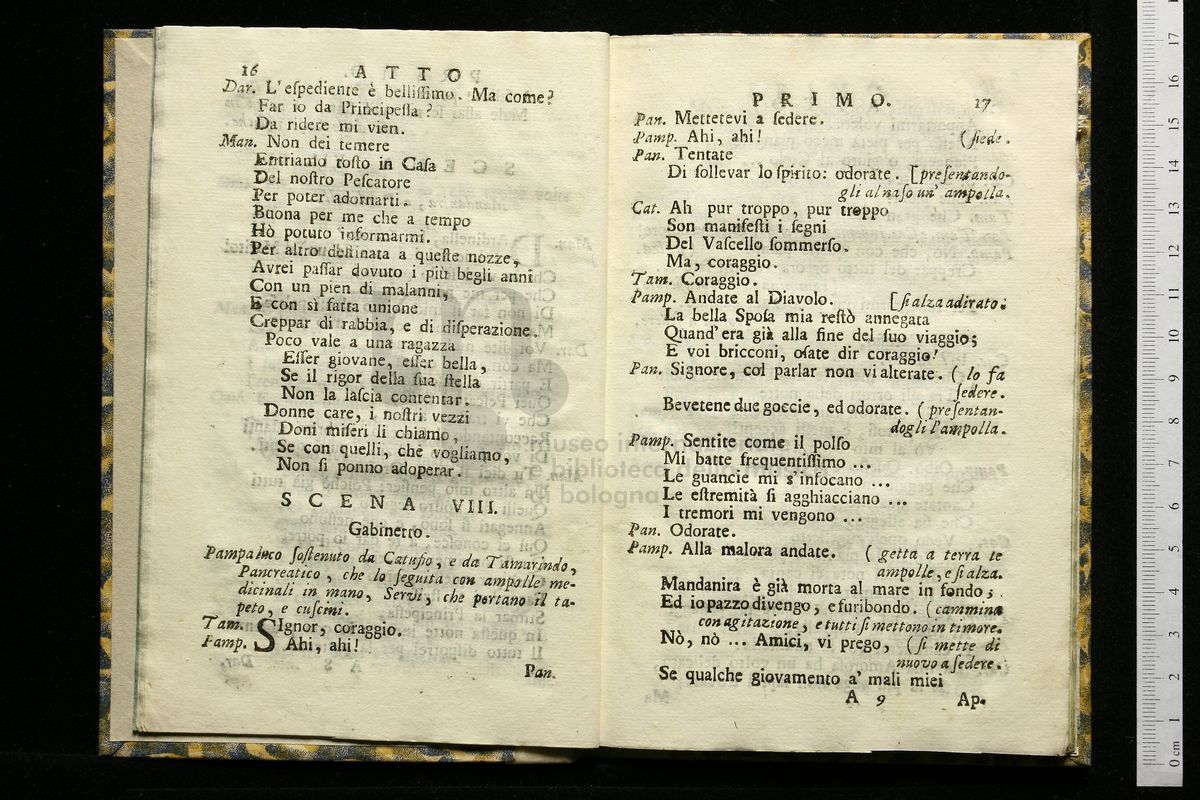 16 ATTO
Dar. L'eſpediente è belliſſimo. Ma come?
Far io da Principeſſa?
Da ridere mi vien.
Man. Non dei temere
Entriamo toſto in Caſa
Del noſtro Peſcatore
Per poter adornarti.
Buona per me che a tempo
Hò potuto informarmi.
Per altro deſtinata a queſte nozze,
Avrei paſſar dovuto i più begli anni
Con un pien di malanni,
E con sì fatta unione
Creppar di rabbia, e di diſperazione.
Poco vale a una ragazza
Eſſer giovane, eſſer bella,
Se il rigor della ſua ſtella
Non la laſcia contentar.
Donne care, i noſtri vezzi
Doni miſeri li chiamo,
Se con quelli, che vogliamo,
Non ſi ponno adoperar.
SCENA VIII.
Gabinetto.
Pampaluco ſoſtenuto da Catuſio, e da Tamarindo,
Pancreatico, che lo ſeguita con ampolle me-
dicinali in mano, Servi, che portano il ta-
peto, e cuſcini.
Tam. SIgnor, coraggio.
Pamp. Ahi, ahi!
Pan.
PRIMO. 17
Pan. Mettetevi a ſedere.
Pamp. Ahi, ahi! (ſiede.
Pan. Tentate
Di ſollevar lo ſpirito: odorate. [preſentando-
gli al naſo un' ampolla.
Cat. Ah pur troppo, pur troppo
Son manifeſti i ſegni
Del Vaſcello ſommerſo.
Ma, coraggio.
Tam. Coraggio.
Pamp. Andate al Diavolo. [ſi alza adirato.
La bella Spoſa mia reſtò annegata
Quand'era già alla fine del ſuo viaggio;
E voi bricconi, oſate dir coraggio!
Pan. Signore, col parlar non vi alterate. (lo fa
ſedere.
Bevetene due goccie, ed odorate. (preſentan-
dogli l'ampolla.
Pamp. Sentite come il polſo
Mi batte frequentiſſimo ...
Le guancie mi s'infocano ...
Le eſtremità ſi agghiacciano ...
I tremori mi vengono ...
Pan. Odorate.
Pamp. Alla malora andate. (getta a terra le
ampolle, e ſi alza.
Mandanira è già morta al mare in fondo;
Ed io pazzo divengo, e furibondo. (cammina
con agitazione, e tutti ſi mettono in timore.
Nò, nò ... Amici, vi prego, (ſi mette di
nuovo a ſedere.
Se qualche giovamento a' mali miei
A 9 Ap-